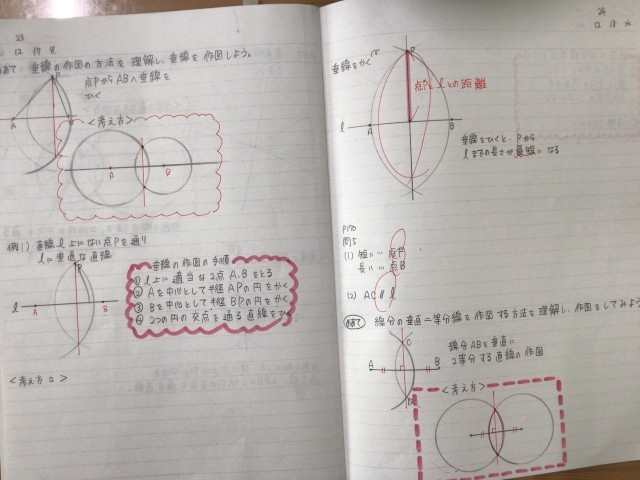 23
12 19 火
めあて 垂線の作図の方法を理解し、垂線を作図しよう。
点PからABへ垂線を
ひく
P
A
B
<考え方>
A
B
例1) 直線l上にない点Pを通り
lに垂直な直線
P
l
A
B
垂線の作図の手順
① l上に適当な2点A、Bをとる
② Aを中心として半径APの円をかく
③ Bを中心として半径BPの円をかく
④ 2つの円の交点を通る直線をひく
<考え方2>
24
12
垂線をかく
P
点Pとlとの距離
l
A
B
垂線をひくと、Pから
lまでの長さが最短になる
P170
問5
(1) 短い … 点P
長い … 点B
(2) AC // l
めあて 線分の垂直二等分線を作図する方法を理解し、作図をしてみよう
C
A
B
D
線分ABを垂直に
2等分する直線の作図
<考え方>